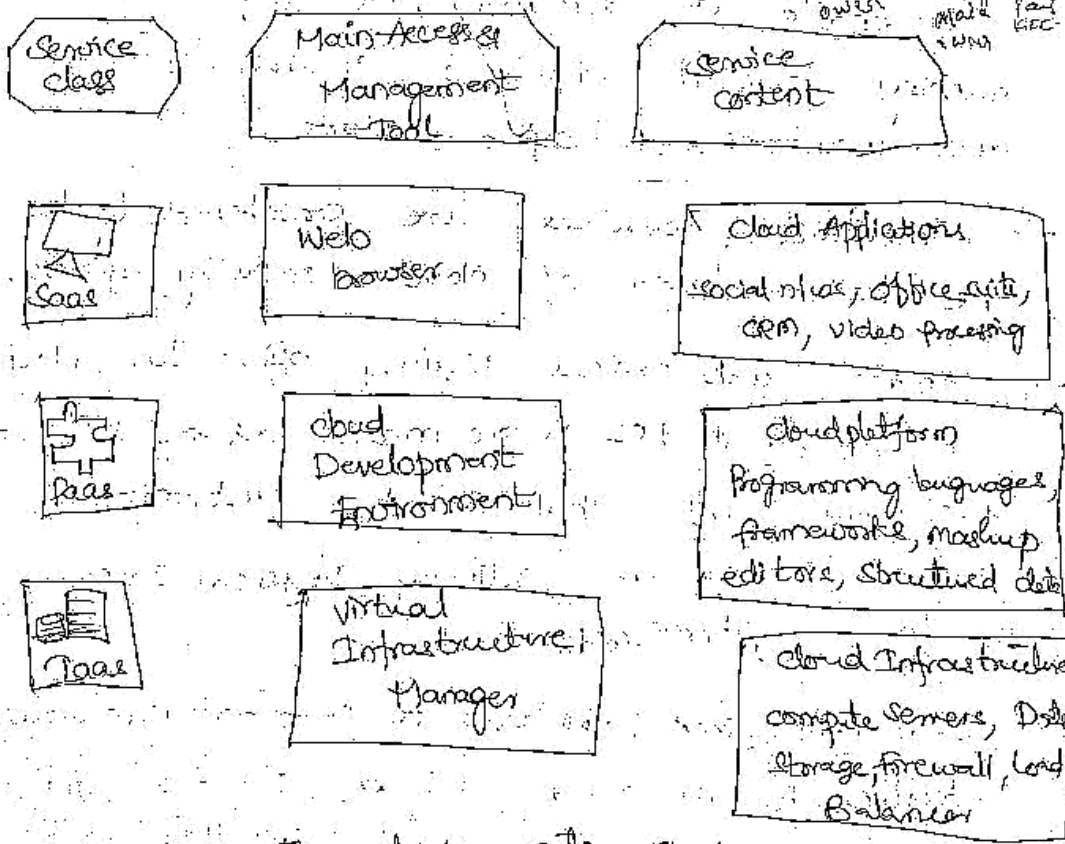 Service
class
Main Access &
Management
Tool
Service
content
SaaS
Web
browser
Cloud Applications
social office suite,
CRM, video processing
PaaS
cloud
Development
Environment
Cloud platform
Programming languages,
frameworks, mashup
editors, Structured data
IaaS
virtual
Infrastructure
Manager
cloud Infrastructure
compute servers, Data
Storage, firewall, Load
Balancer